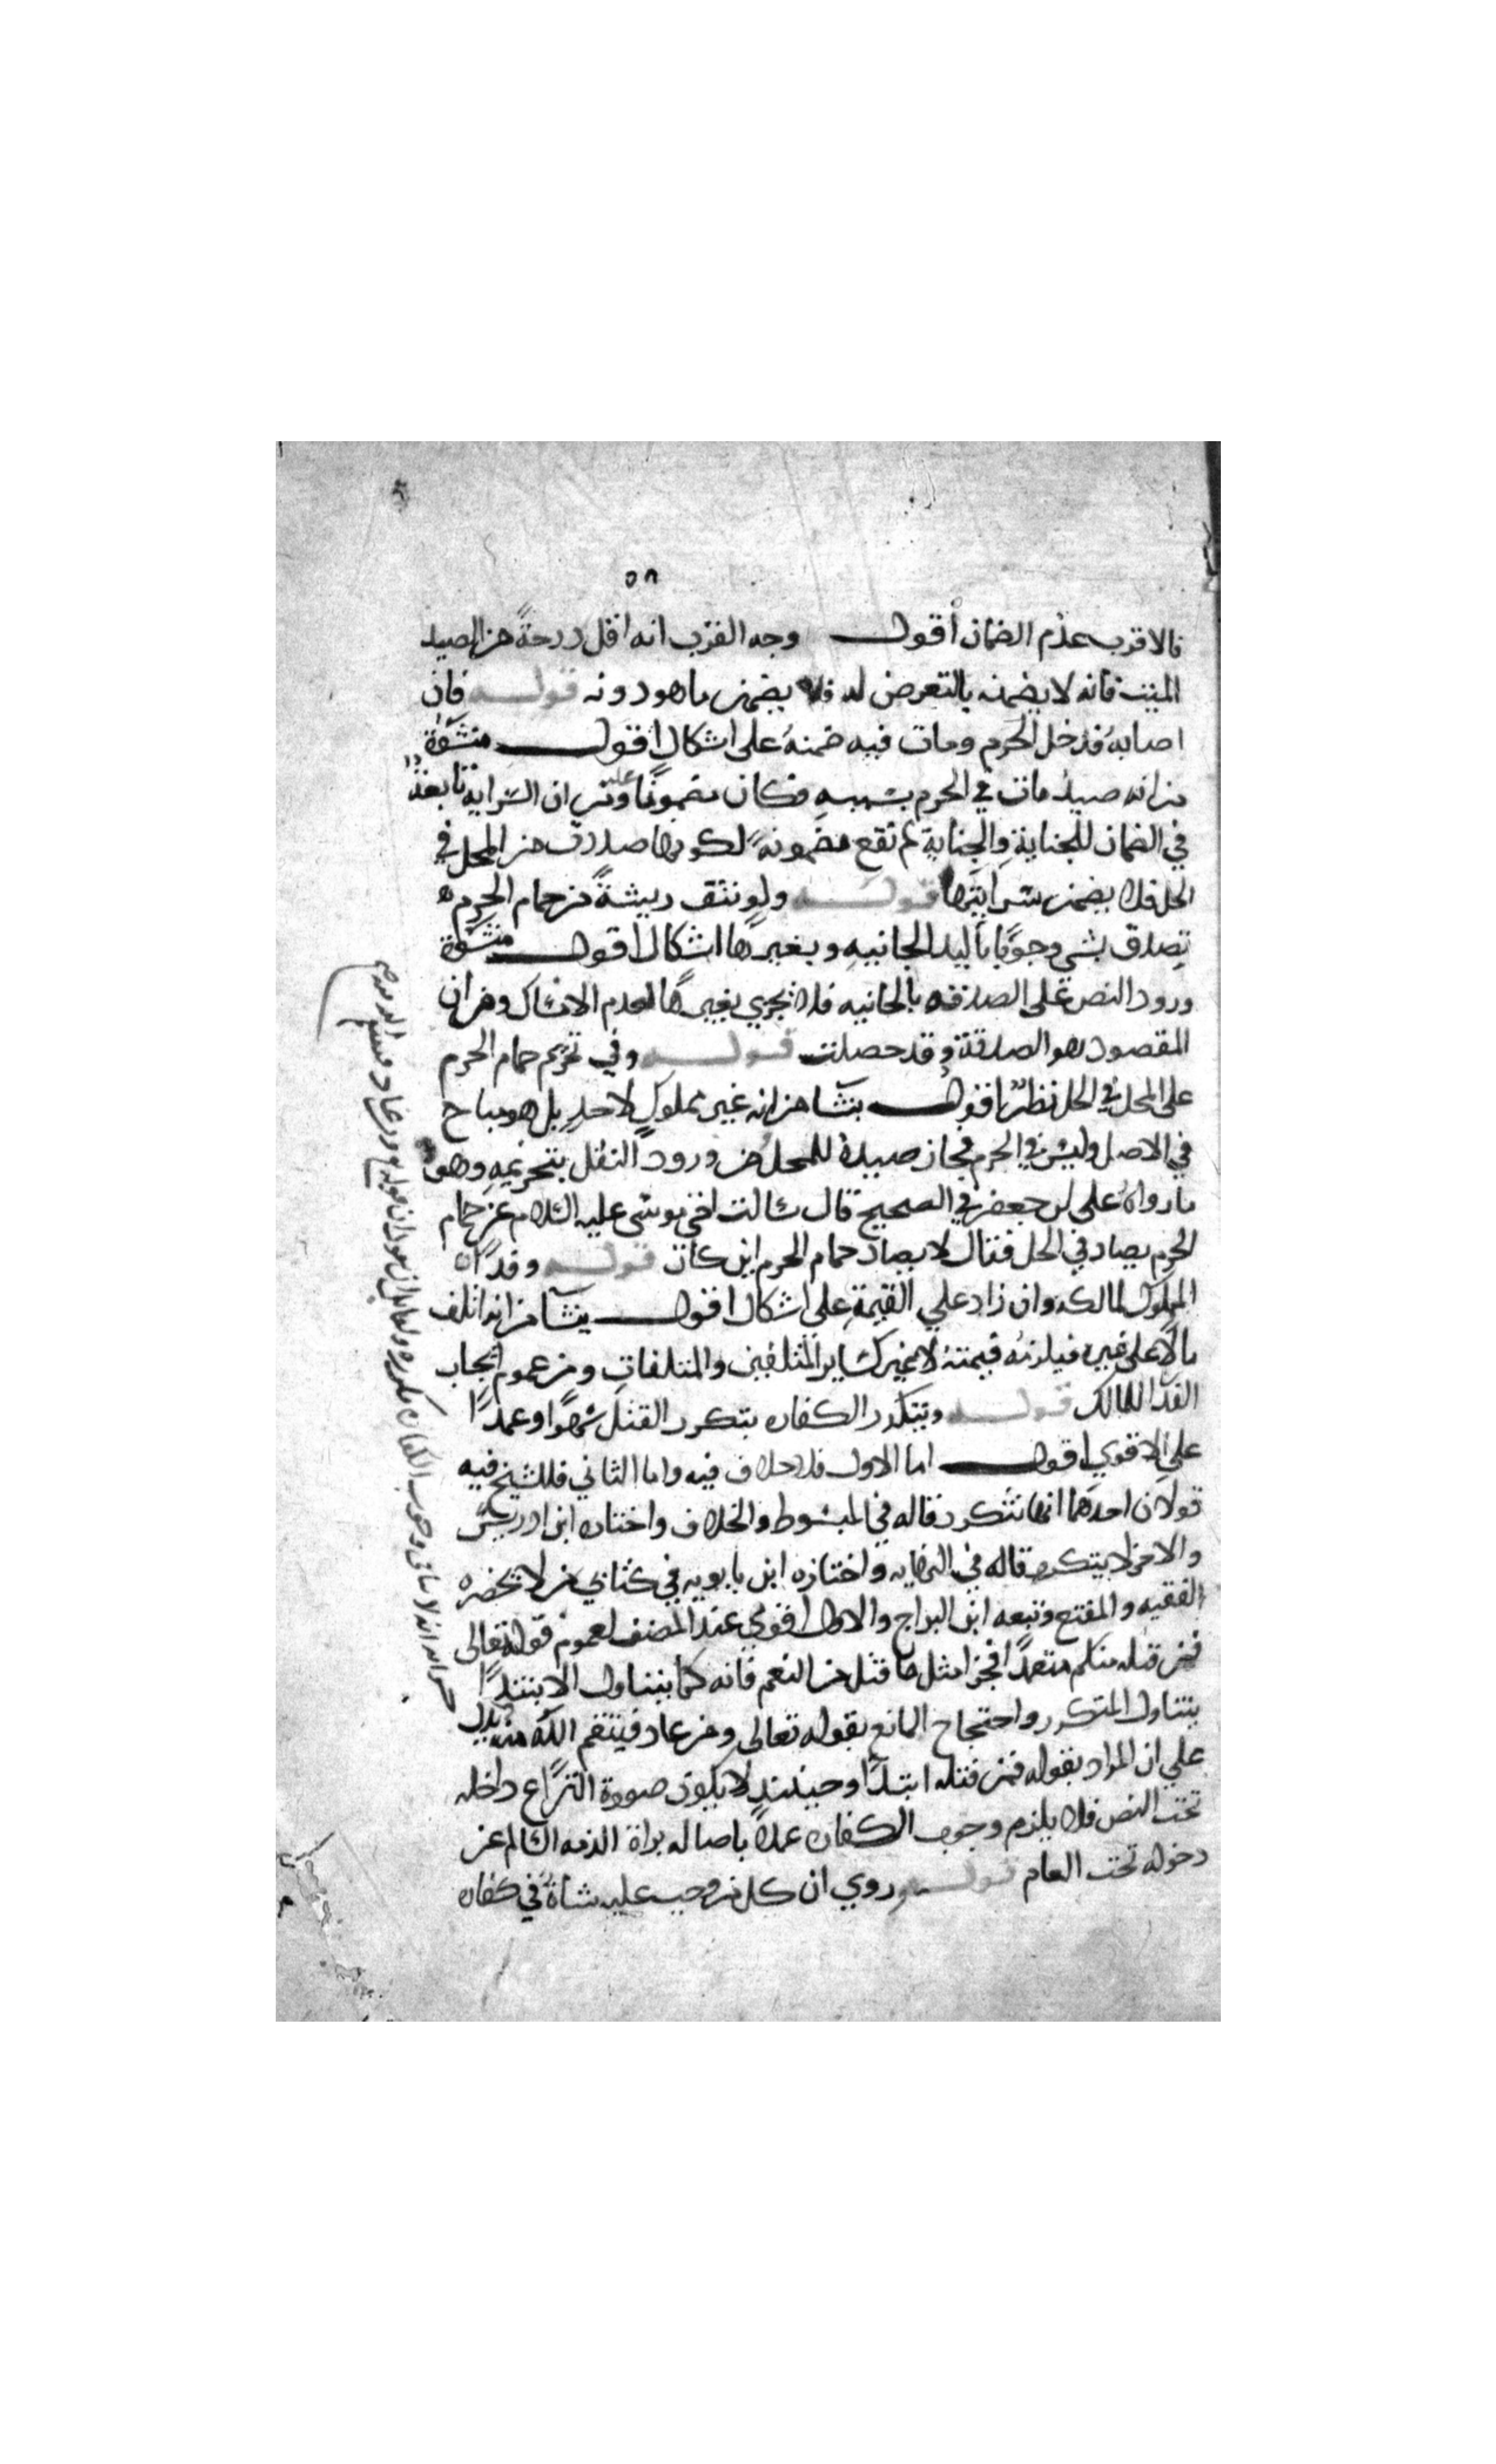 ٥٨
فالاقرب عدم الضمان أقول وجه القرب انه اقل درجةً من الصيد
الميت فانه لا يضمنه بالتعرض له فلا يضمن ما هو دونه قوله فان
اصابهُ فدخل الحرم ومات فيه ضمنهُ على اشكال اقول منشؤهُ
من انه صيدٌ مات في الحرم بسببهِ فكان مضمونًا عليه ومن ان السرايه تابعةٌ
في الضمان للجنايةِ والجنايةِ لم تقع مضمونهً لكونها صدرت من المحل في
الحل فلا يضمن سرايتها قوله ولو نتف ريشةً من حمام الحرم
تصدق بشي وجوبًا باليد الجانيهِ وبغيرها اشكال اقول منشؤهُ
ورود النص على الصدقه بالجانيه فلا تجزي بغيرها لعدم الامتثال ومن ان
المقصود هو الصدقة وقد حصلت قوله وفي تحريم حمام الحرم
على المحل في الحل نظرٌ اقول ينشا من انه غير مملوكٍ لاحدٍ بل هو مباح
في الاصل وليس في الحرم فجاز صيدهُ للمحل ومن ورود النقل بتحريمهِ وهو
ما رواهُ على بن جعفر في الصحيح قال سالت اخي موسى عليه السلام عن حمام
الحرم يصاد في الحل فقال لا يصاد حمام الحرم اين كان قوله وفدآه
المملوك لمالكه وان زاد علي القيمةِ على اشكال اقول ينشآ من انه اتلف
مالًا على غيره فيلزمُه قيمتهُ لا غير كساير المتلفين والمتلفاتِ ومن عموم ايجاب
الفدا للمالك قوله وتتكرر الكفاره بتكرر القتل سهوًا وعمدًا
على الاقوي اقول اما الاول فلا خلاف فيه واما الثاني فللشيخ فيه
قولان احدهما انها تتكرر قاله في المبسوط والخلاف واختاره ابن ادريس
والاخر لا يتكرر قاله في النهايه واختاره ابن بابويه في كتابي من لا يحضره
الفقيه والمقنع وتبعه ابن البراج والاول اقوي عند المصنف لعموم قوله تعالى
فمن قتله منكم متعمدًا فجزا مثل ما قتل من النعم فانه كما يتناول الابتدآ
يتناول المتكرر واحتجاج المانع بقوله تعالى ومن عاد فينتقم الله منه يدل
علي ان المراد بقوله فمن قتله ابتدآً وحينئذٍ لا يكون صورة النزاع داخله
تحت النص فلا يلزم وجوب الكفاره عملا باصاله براة الذمه السالم عن
دخوله تحت العام قوله وروي ان كل من وجب عليه شاةٌ في كفاره